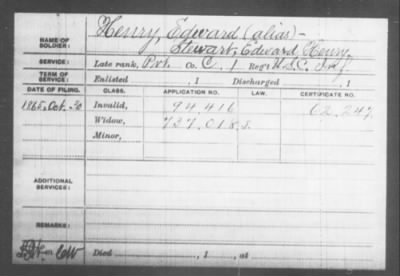 NAME OF SOLDIER: Henry, Edward (alias)-
Stewart, Edward Henry.
SERVICE: Late rank, Pvt. Co. C, 1 Reg't U.S.C. Inf.
TERM OF SERVICE: Enlisted , 1 Discharged , 1
DATE OF FILING. CLASS. APPLICATION NO. LAW. CERTIFICATE NO.
1865, Oct. 30 Invalid, 94.416 62.247
Widow, 737.018
Minor,
ADDITIONAL SERVICES:
REMARKS:
Died , 1 , at